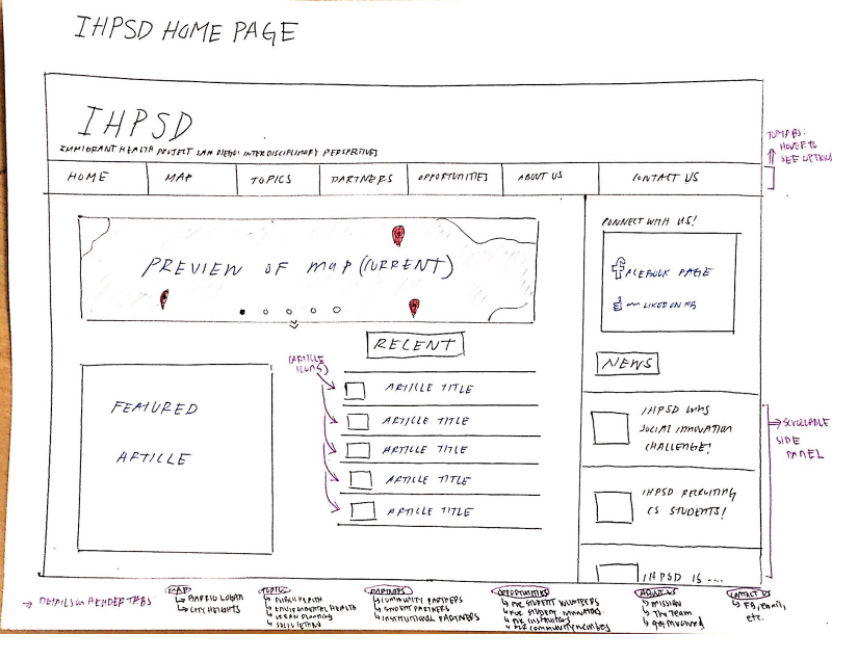 IHPSD HOME PAGE
IHPSD
IMMIGRANT HEALTH PROJECT SAN DIEGO: INTERDISCIPLINARY PERSPECTIVES
HOME
MAP
TOPICS
PARTNERS
OPPORTUNITIES
ABOUT US
CONTACT US
HOVER TO
SEE OPTIONS
PREVIEW OF MAP (CURRENT)
CONNECT WITH US!
FACEBOOK PAGE
LIKED ON FB
RECENT
(ARTICLE
ICONS)
ARTICLE TITLE
ARTICLE TITLE
ARTICLE TITLE
ARTICLE TITLE
ARTICLE TITLE
FEATURED
ARTICLE
NEWS
IHPSD WINS
SOCIAL INNOVATION
CHALLENGE!
IHPSD RECRUITING
CS STUDENTS!
IHPSD IS ...
SCROLLABLE
SIDE
PANEL
DETAILS ON HEADER TABS
MAP
BARRIO LOGAN
CITY HEIGHTS
TOPICS
PUBLIC HEALTH
ENVIRONMENTAL HEALTH
URBAN PLANNING
PARTNERS
COMMUNITY PARTNERS
STUDENT PARTNERS
INSTITUTIONAL PARTNERS
OPPORTUNITIES
FOR STUDENT VOLUNTEERS
FOR STUDENT
FOR INSTRUCTORS
FOR COMMUNITY MEMBERS
ABOUT US
MISSION
The Team
get involved
CONTACT US
FB, email,
etc.